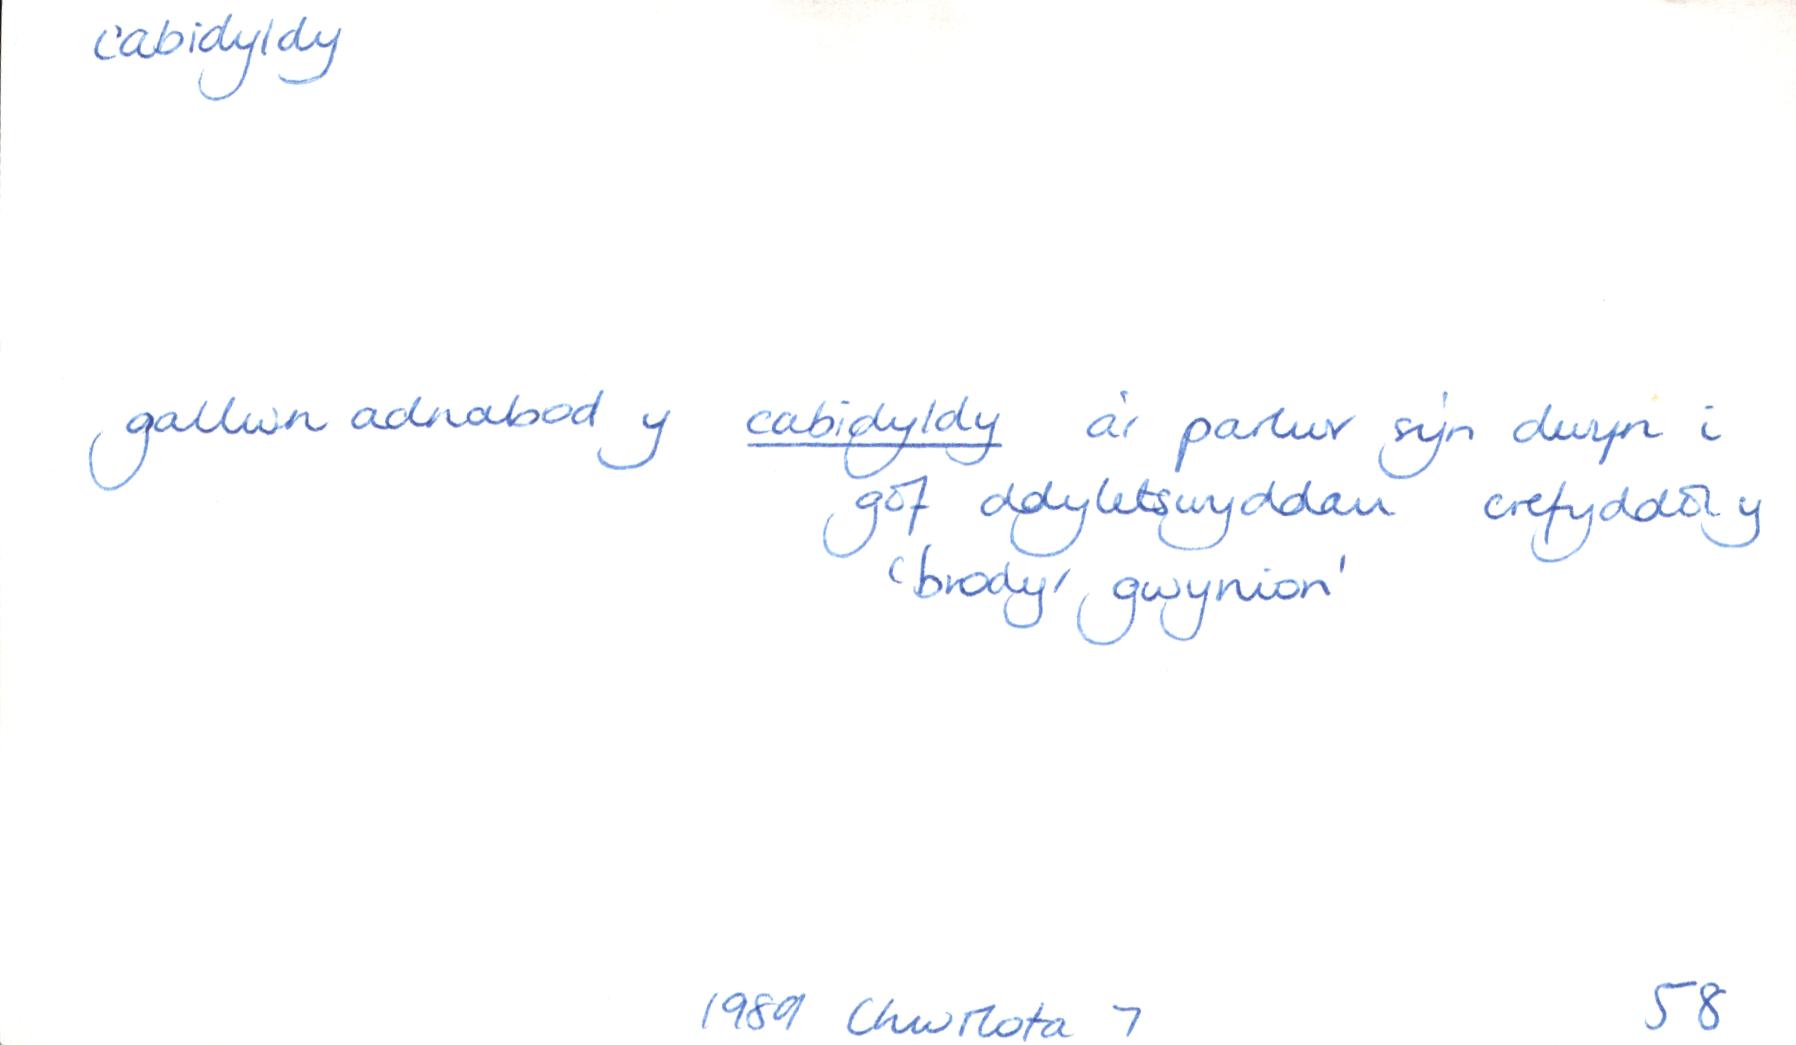 cabidyldy
gallwn adnabod y cabidyldy a'r parlwr sy'n dwyn i
gof ddyletswyddau crefyddol y
'brodyr gwynion'
1989 Chwilota 7 58